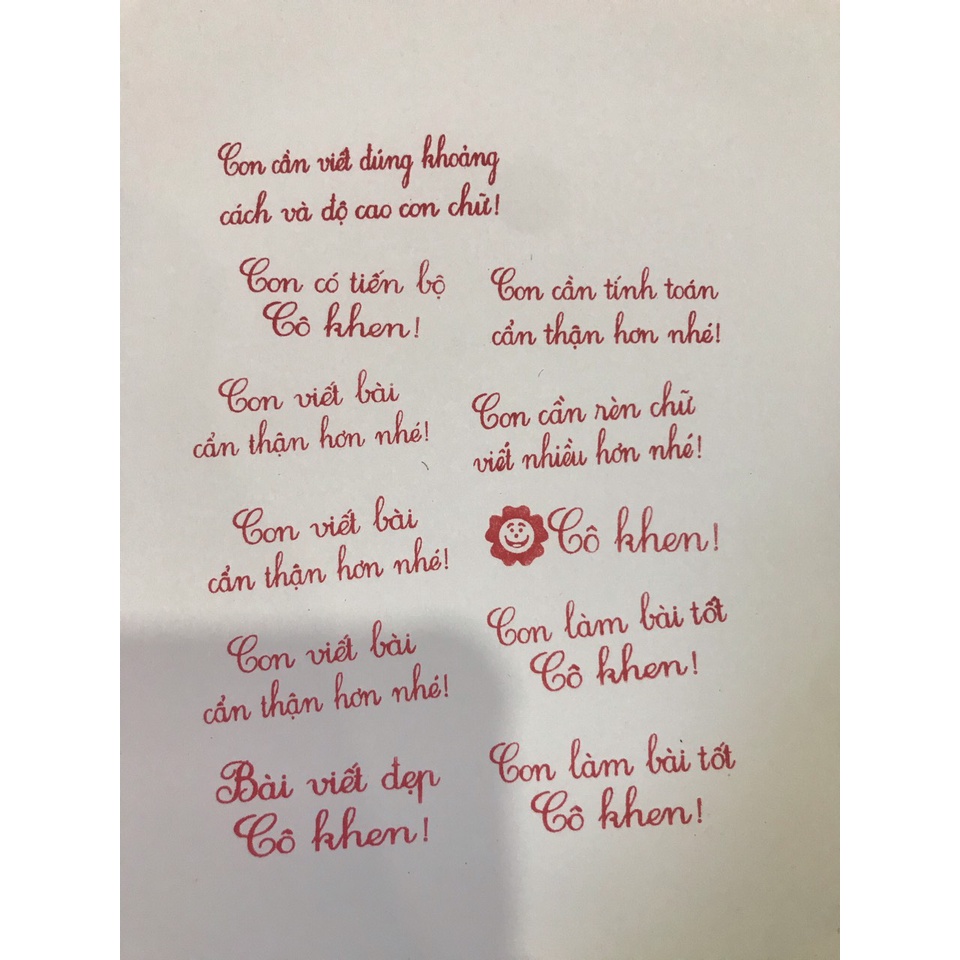 Con cần viết đúng khoảng
cách và độ cao con chữ!
Con có tiến bộ
Cô khen!
Con cần tính toán
cẩn thận hơn nhé!
Con viết bài
cẩn thận hơn nhé!
Con cần rèn chữ
viết nhiều hơn nhé!
Con viết bài
cẩn thận hơn nhé!
Cô khen!
Con làm bài tốt
Cô khen!
Con viết bài
cẩn thận hơn nhé!
Con làm bài tốt
Cô khen!
Bài viết đẹp
Cô khen!